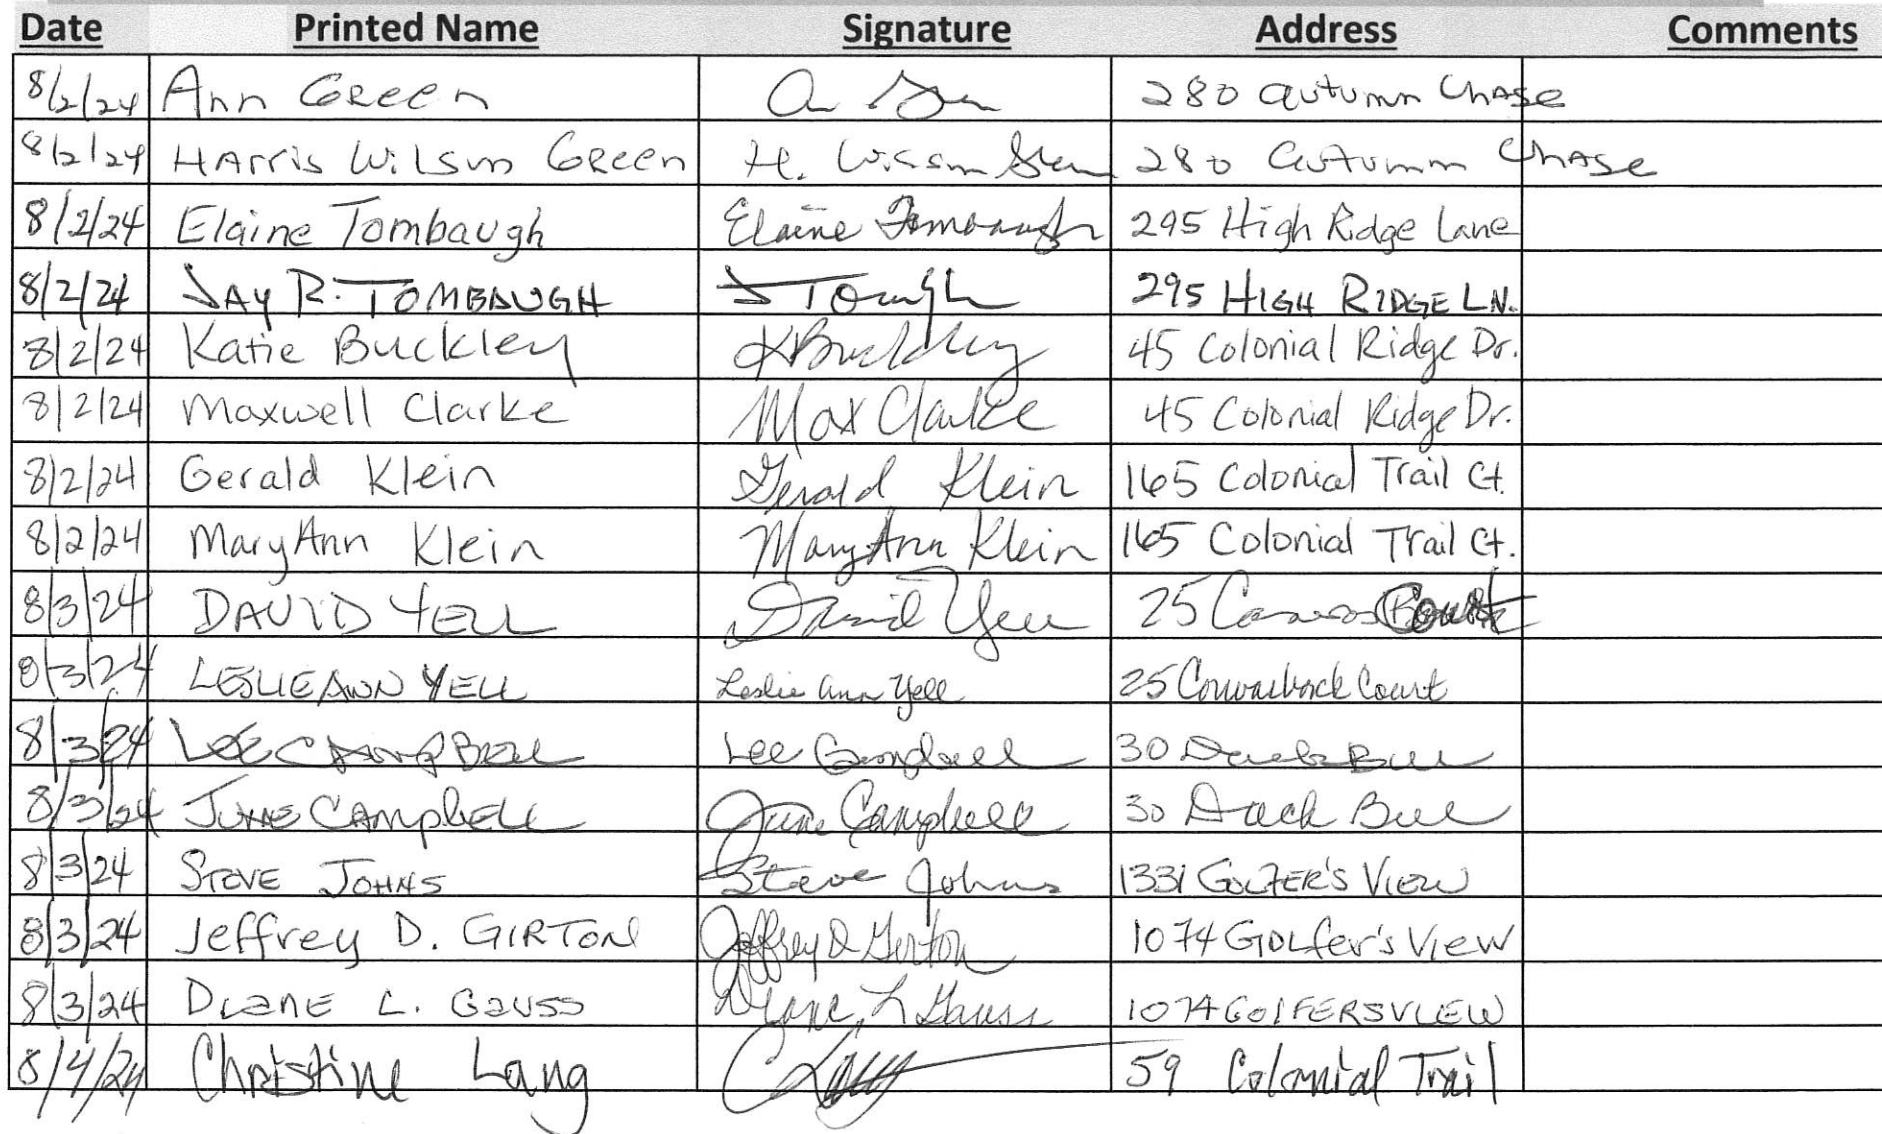 Date Printed Name Signature Address Comments
8/2/24 Ann Green 280 Autumn Chase
8/2/24 Harris Wilson Green H. Wilson Green 280 Autumn Chase
8/2/24 Elaine Tombaugh Elaine Tombaugh 295 High Ridge Lane
8/2/24 JAY R. TOMBAUGH 295 HIGH RIDGE LN.
8/2/24 Katie Buckley KBuckley 45 Colonial Ridge Dr.
8/2/24 Maxwell Clarke Max Clarke 45 Colonial Ridge Dr.
8/2/24 Gerald Klein Gerald Klein 165 Colonial Trail Ct.
8/2/24 MaryAnn Klein MaryAnn Klein 165 Colonial Trail Ct.
8/3/24 DAVID YELL David Yell 25 Court
8/3/24 LESLIEANN YELL Leslie Ann Yell 25 Court
8/3/24 LEE CAMPBELL Lee Campbell 30 Duck Bill
8/3/24 JUNE CAMPbELL June Campbell 30 Duck Bill
8/3/24 STEVE JOHNS Steve Johns 1331 GOLFER'S VIEW
8/3/24 Jeffrey D. GIRTON Jeffrey D Girton 1074 GOLfer's VIEW
8/3/24 DIANE L. GAUSS Diane L Gauss 1074 GOLFERSVIEW
8/4/24 Christine Lang C Lang 59 Colonial Trail